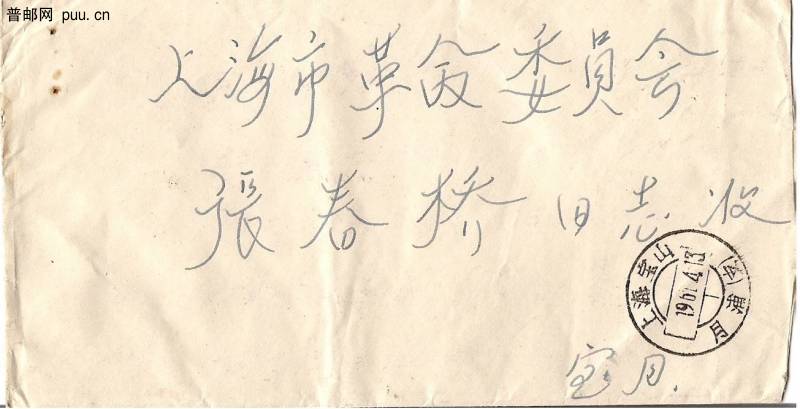 普邮网 puu.cn
上海市革命委員会
張春桥同志收
上海宝山
4.13
月浦
宝月.